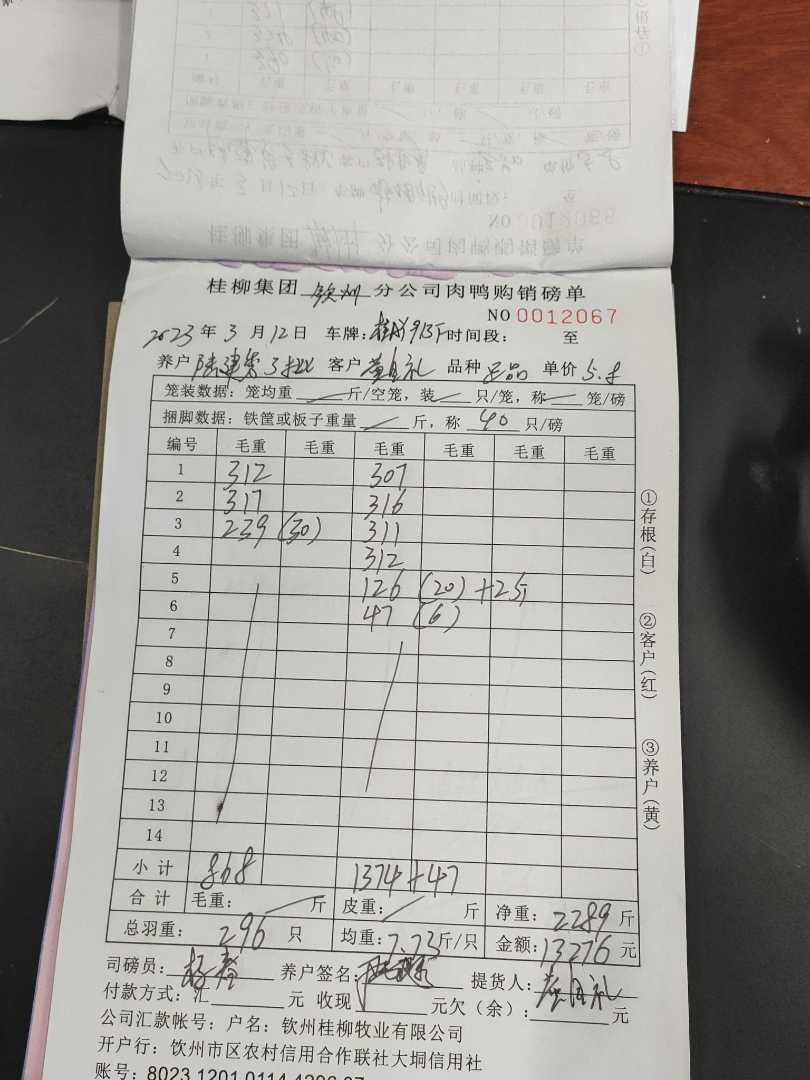 桂柳集团 钦州 分公司肉鸭购销磅单
NO 0012067
2023 年 3 月 12 日 车牌: 时间段: 至
养户 客户 品种 正品 单价 5.8
笼装数据: 笼均重 斤/空笼, 装 只/笼, 称 笼/磅
捆脚数据: 铁筐或板子重量 斤, 称 40 只/磅
编号 毛重 毛重 毛重 毛重 毛重 毛重
1 312 307
2 317 316
3 239 (30) 311
4 312
5 126 (20) +25
6 47 (6)
7
8
9
10
11
12
13
14
小计 868 1374+47
合计 毛重: 斤 皮重: 斤 净重: 2289 斤
总羽重: 296 只 均重: 7.73 斤/只 金额: 13276 元
司磅员: 养户签名: 提货人:
付款方式: 汇 元 收现 元欠(余): 元
公司汇款帐号: 户名: 钦州桂柳牧业有限公司
开户行: 钦州市区农村信用合作联社大垌信用社
账号: 8023 1201 0114
①存根(白)
②客户(红)
③养户(黄)